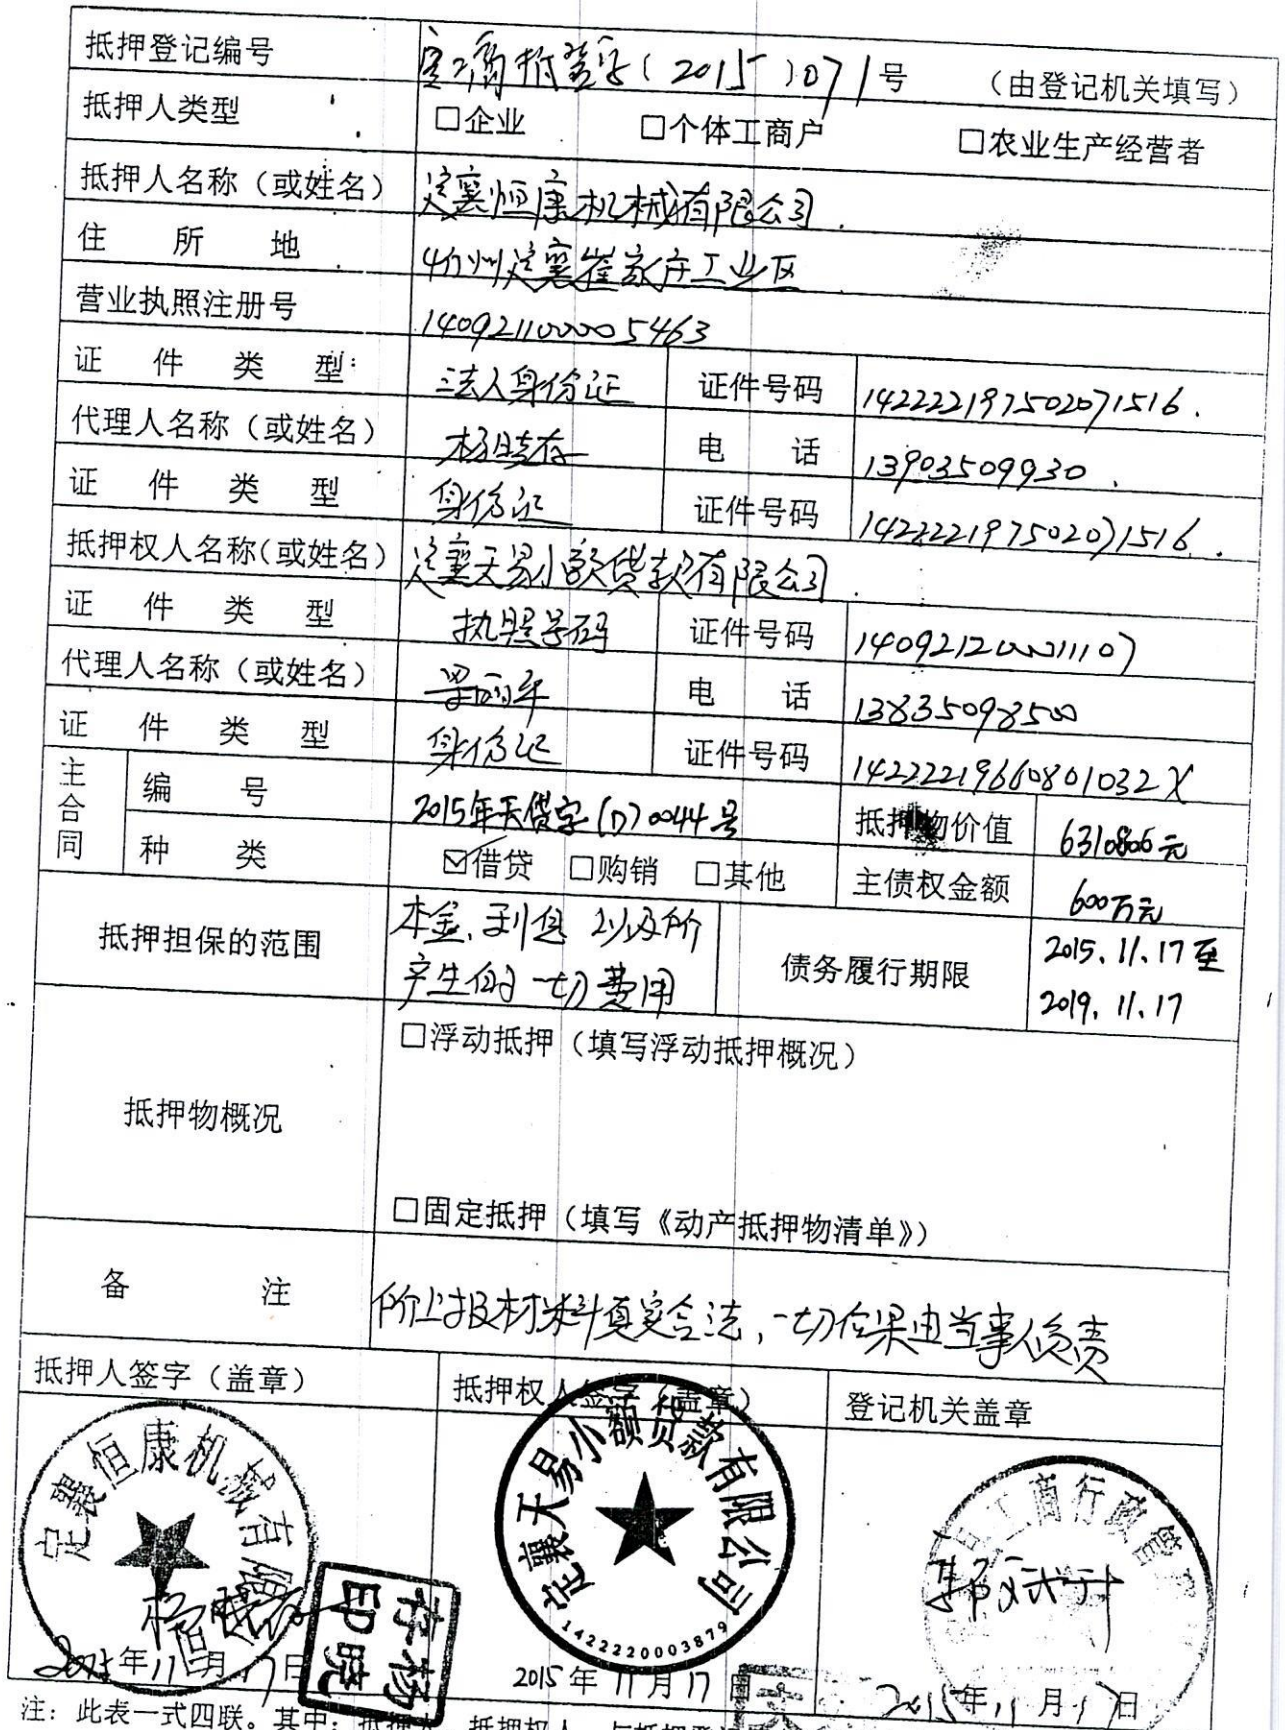 抵押登记编号 定工商抵登字(2015)071号 (由登记机关填写)
抵押人类型 □企业 □个体工商户 □农业生产经营者
抵押人名称(或姓名) 定襄恒康机械有限公司
住所地 忻州定襄崔家庄工业区
营业执照注册号 140921100005463
证件类型: 法人身份证 证件号码 142222197502071516.
代理人名称(或姓名) 杨晓存 电话 13903509930
证件类型 身份证 证件号码 142222197502071516.
抵押权人名称(或姓名) 定襄天易小额贷款有限公司
证件类型 执照号码 证件号码
代理人名称(或姓名) 电话 13835098500
证件类型 身份证 证件号码 14222219660801032X
主合同 编号 2015年天贷字(D)0044号 抵押物价值 6310806元
种类 ☑借贷 □购销 □其他 主债权金额 600万元
抵押担保的范围 本金、利息 以及所产生的一切费用 债务履行期限 2015.11.17至
2019.11.17
□浮动抵押(填写浮动抵押概况)
抵押物概况
□固定抵押(填写《动产抵押物清单》)
备注 所上报材料真实合法,一切后果由当事人负责
抵押人签字(盖章) 抵押权人签字(盖章) 登记机关盖章
定襄恒康机械有限
定襄天易小额贷款有限公司
1422220003879
工商行政管
杨晓存印
2015年11月17日 2015年11月17 2015年11月17日
注:此表一式四联。其中:抵押人、抵押权人